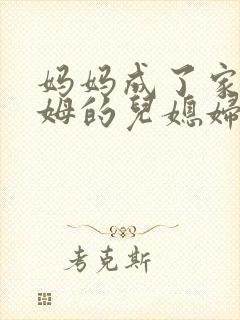 妈妈成了家
姆的儿媳婦
考克斯